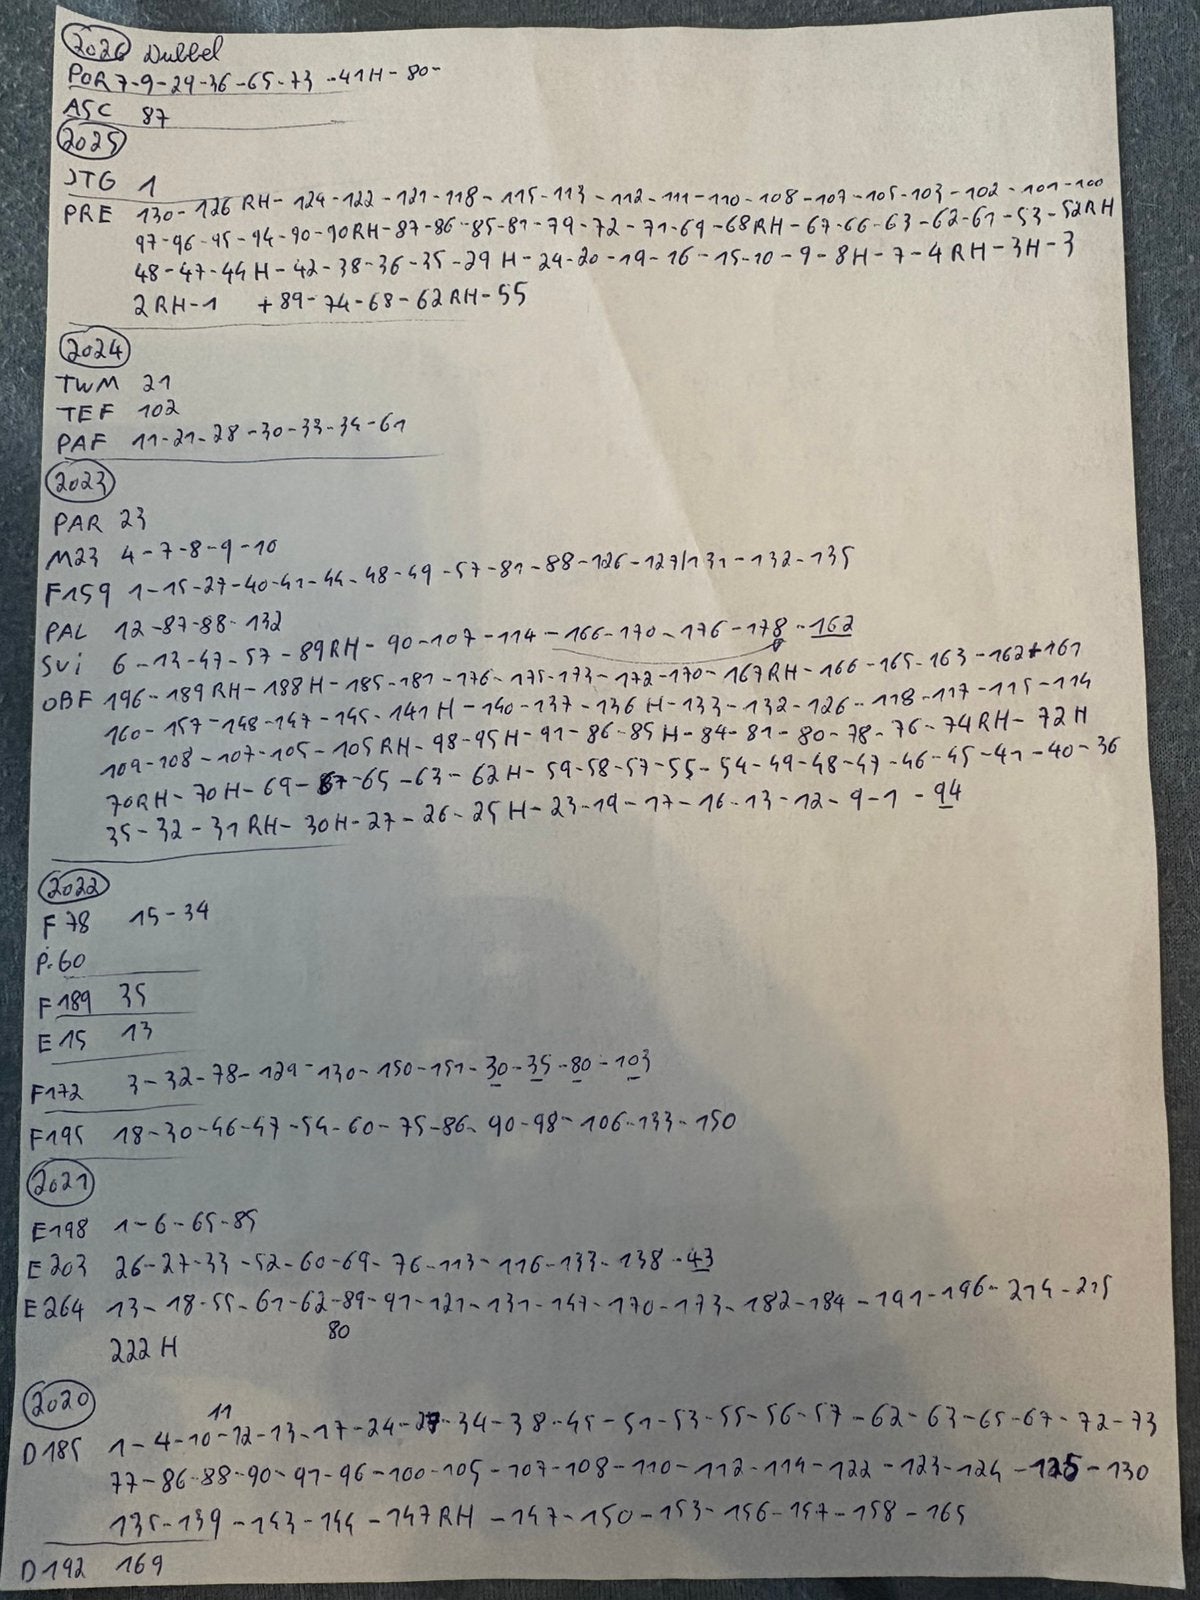 2026 Dubbel
POR 7-9-29-36-65-73-41H-80-
ASC 87
2025
JTG 1
PRE 130-126 RH-124-122-121-118-115-113-112-111-110-108-107-105-103-102-101-100
97-96-95-94-90-90RH-87-86-85-81-79-72-71-69-68RH-67-66-63-62-61-53-52RH
48-47-44H-42-38-36-35-29 H-24-20-19-16-15-10-9-8H-7-4 RH-3H-3
2 RH-1 +89-74-68-62RH-55
2024
TWM 21
TEF 102
PAF 11-21-28-30-33-34-61
2023
PAR 23
M23 4-7-8-9-10
F159 1-15-27-40-41-44-48-49-57-81-88-126-127/131-132-135
PAL 12-87-88-132
SVi 6-13-47-57-89RH-90-107-114-166-170-176-178-162
OBF 196-189RH-188H-185-181-176-175-173-172-170-167RH-166-165-163-162+161
160-157-148-147-145-141H-140-137-136H-133-132-126-118-117-115-114
109-108-107-105-105RH-98-95H-91-86-85H-84-81-80-78-76-74RH-72H
70RH-70H-69-67-65-63-62H-59-58-57-55-54-49-48-47-46-45-41-40-36
35-32-31RH-30H-27-26-25H-23-19-17-16-13-12-9-1-94
2022
F78 15-34
P.60
F189 35
E15 13
F172 3-32-78-129-130-150-151-30-35-80-103
F195 18-30-46-47-54-60-75-86-90-98-106-133-150
2021
E198 1-6-65-85
E203 26-27-33-52-60-69-76-113-116-133-138-43
E264 13-18-55-61-62-89-91-121-131-147-170-173-182-184-191-196-214-215
80
222 H
2020
11
D185 1-4-10-12-13-17-24-27-34-38-45-51-53-55-56-57-62-63-65-67-72-73
77-86-88-90-91-96-100-105-107-108-110-112-114-122-123-124-125-130
135-139-143-144-147RH-147-150-153-156-157-158-165
D192 169